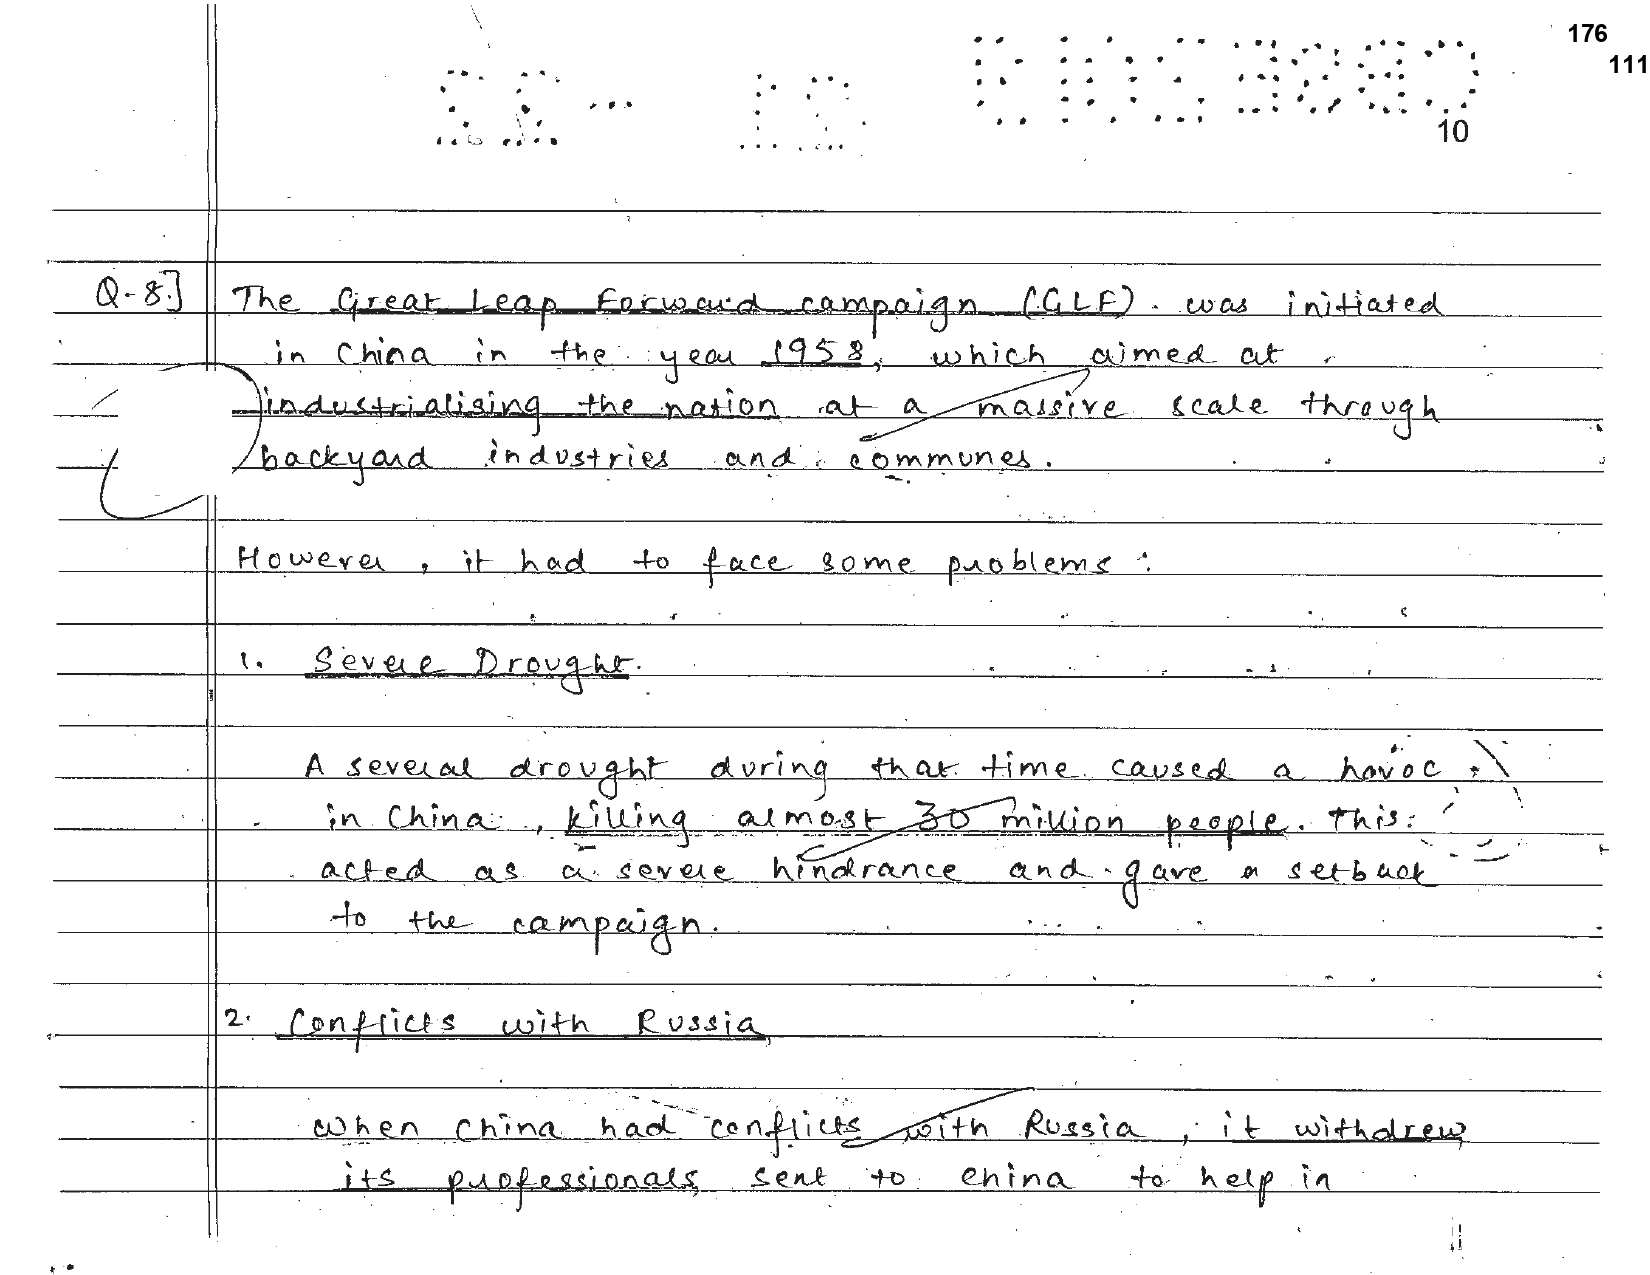 176
111
10
Q-8.] The Great Leap Forward campaign (GLF). was initiated
in China in the year 1958, which aimed at
industrialising the nation at a massive scale through
backyard industries and communes.
However, it had to face some problems:
1. Severe Drought.
A several drought during that time caused a havoc
in China, killing almost 30 million people. This
acted as a severe hindrance and gave a setback
to the campaign.
2. Conflicts with Russia
When China had conflicts with Russia, it withdrew
its professionals sent to China to help in